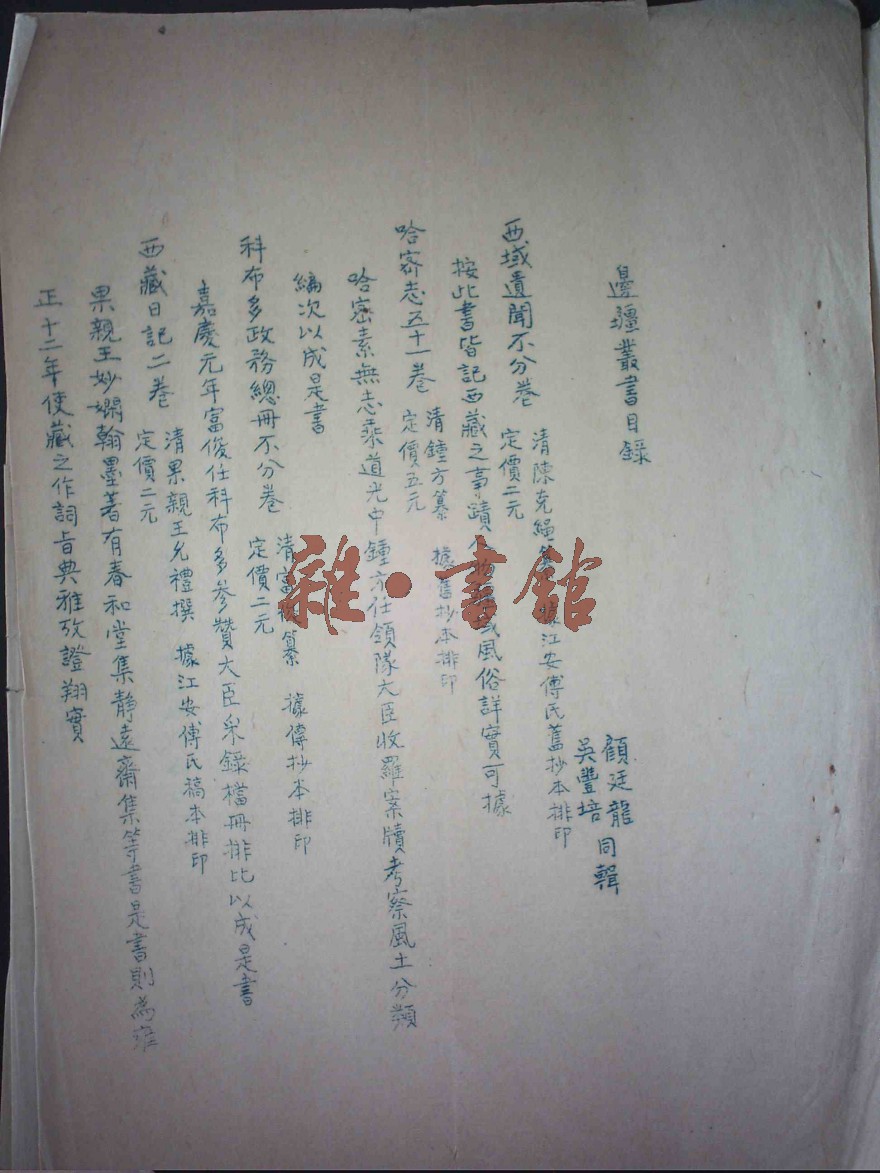 邊疆叢書目錄
顧廷龍
吳豐培 同輯
西域遺聞不分卷
清陳克繩 據江安傅氏舊抄本排印
定價二元
按此書皆記西藏之事蹟 風俗詳實可據
哈密志五十一卷
清鍾方纂 據舊抄本排印
定價五元
哈密素無志乘道光中鍾方任領隊大臣收羅案牘考察風土分類
編次以成是書
科布多政務總冊不分卷
清富俊纂 據傅抄本排印
定價二元
嘉慶元年富俊任科布多參贊大臣采錄檔冊排比以成是書
西藏日記二卷
清果親王允禮撰 據江安傅氏稿本排印
定價二元
果親王妙嫻翰墨著有春和堂集靜遠齋集等書是書則為雍
正十二年使藏之作詞旨典雅攷證翔實
雜·書館